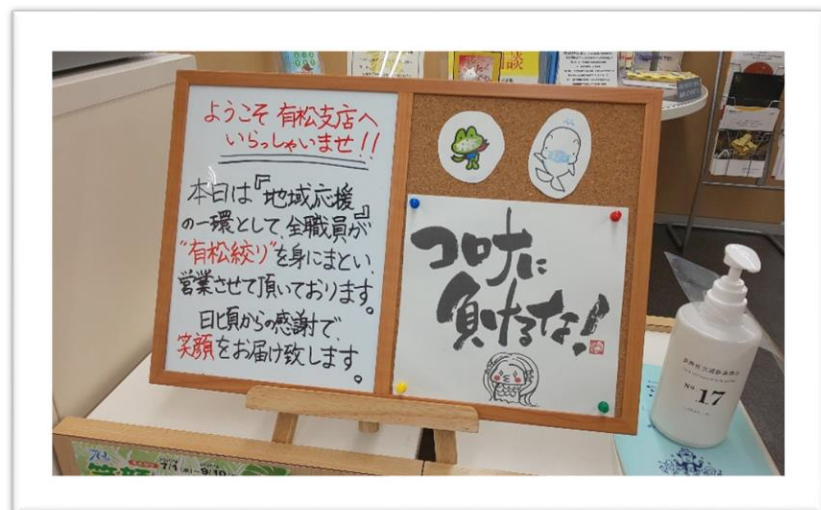 ようこそ 有松支店へ
いらっしゃいませ!!
本日は『地域応援』
の一環として、全職員が
"有松絞り"を身にまとい、
営業させて頂いております。
日頃からの感謝で、
笑顔をお届け致します。
コロナに
負けるな!
No.17
7/1
談